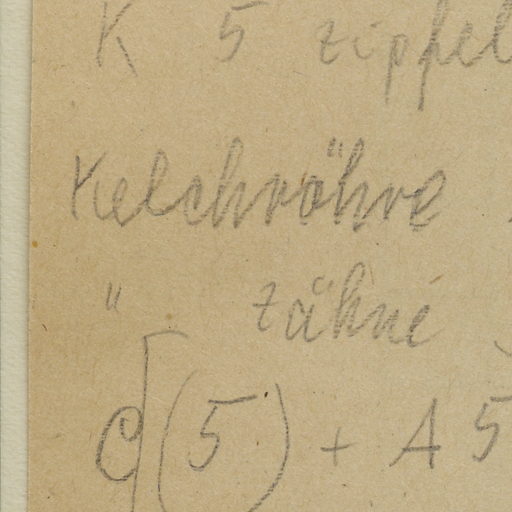 K 5 zipfel
Kelchröhre
" zähne
C[(5) + A 5